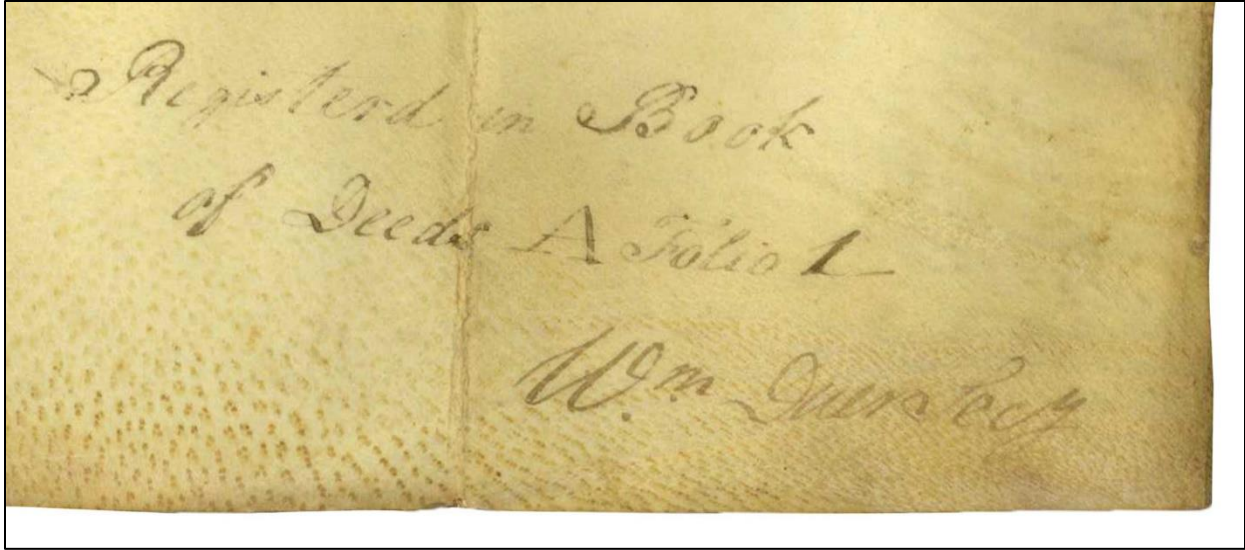 Registerd in Book
of Deeds A Folio 1
Wm Duer Secy